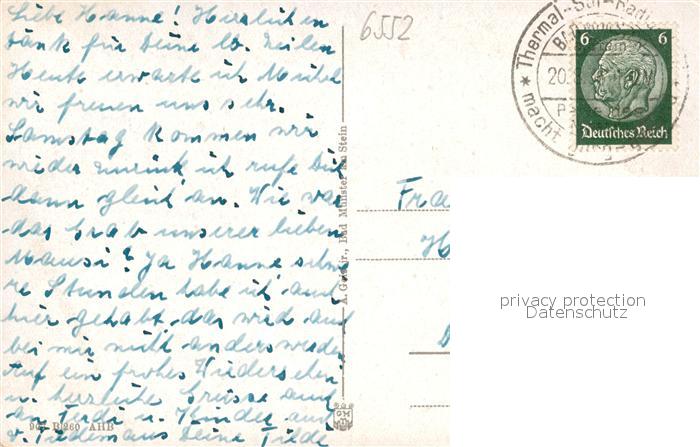 Liebe Hanne! Herzlichen
Dank für Deine lb. Zeilen
Heute erwarte ich Michel
wir freuen uns sehr.
Samstag kommen wir
wieder zurück ich rufe Dich
dann gleich an. Wie war
das Grab unserer lieben
Mausi? Ja Hanne schwe
re Stunden habe ich auch
hier gehabt das wird auch
bei mir nicht anders werden
Auf ein frohes Wiedersehen
u. herzliche Grüsse auch
an Ferdi u. Kinder auch
v. Deine
6552
* Thermal-Sol-Rad
BAD
20.
macht
6 6
Deutsches Reich
Fra
H
Bad Münster am Stein
B 260 AHB
privacy protection
Datenschutz